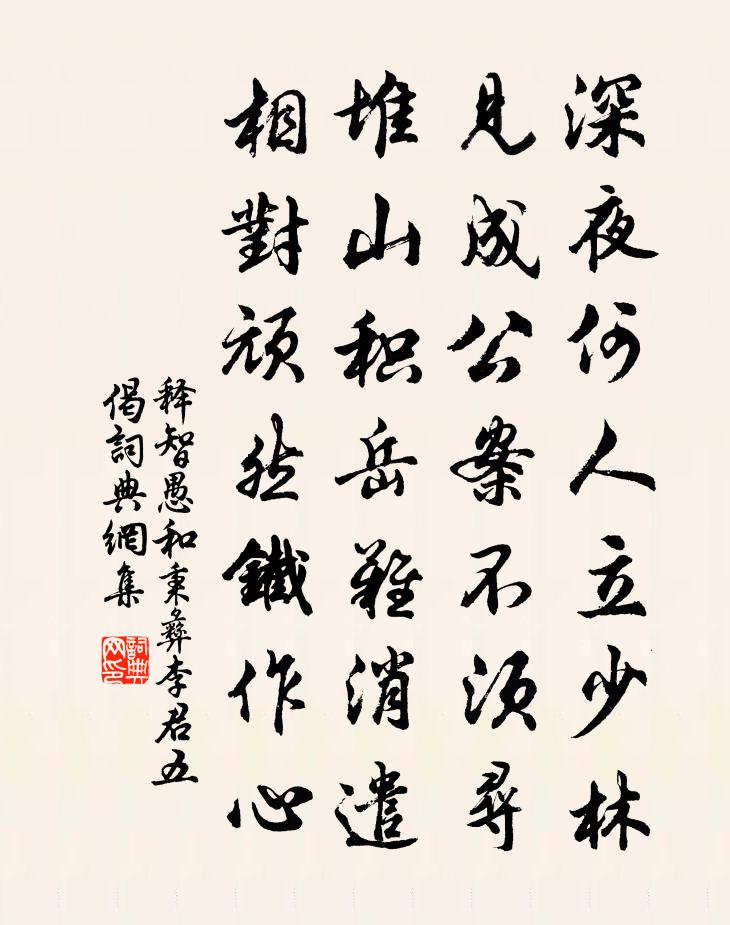 深夜何人立少林
見成公案不須尋
堆山积岳難消遣
相對頑然鐵作心
释智愚和秉彝李君五
偈詞典網集
詞典网印